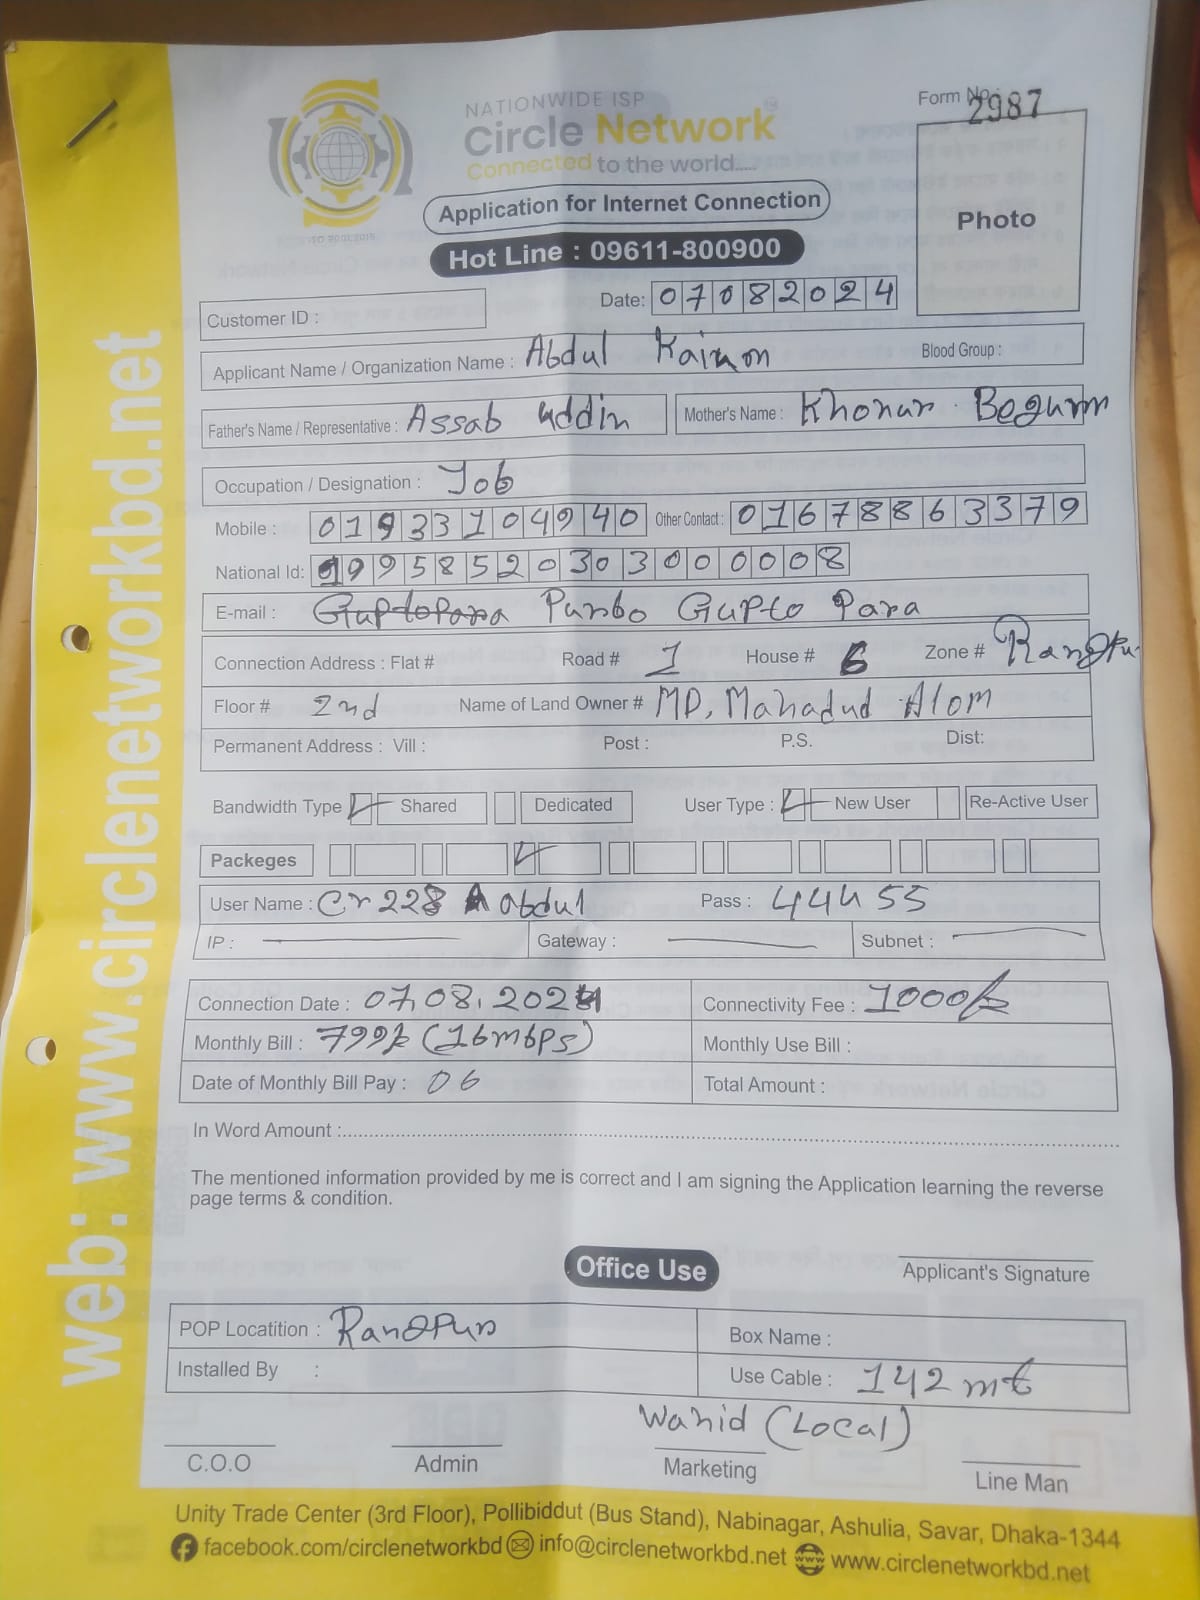 NATIONWIDE ISP
Circle Network
Connected to the world.....
ISO 9001:2015
Form No.: 2987
Application for Internet Connection
Photo
Hot Line : 09611-800900
Date: 07082024
Customer ID :
Applicant Name / Organization Name : Abdul Kaimon Blood Group :
Father's Name / Representative : Assab uddin Mother's Name : Khonur Begum
Occupation / Designation : Job
Mobile : 01933104940 Other Contact : 01678863379
National Id: 19958520303000008
E-mail : Guptopara Purbo Gupto Para
Connection Address : Flat # Road # 1 House # 6 Zone # Rangpur
Floor # 2nd Name of Land Owner # MD. Mahadud Alom
Permanent Address : Vill : Post : P.S. Dist:
Bandwidth Type Shared Dedicated User Type : New User Re-Active User
Packeges
User Name : Cr228 abdul Pass : 444 55
IP : Gateway : Subnet :
Connection Date : 07.08.2024 Connectivity Fee : 1000/=
Monthly Bill : 799/= (16mbps) Monthly Use Bill :
Date of Monthly Bill Pay : 06 Total Amount :
In Word Amount :
The mentioned information provided by me is correct and I am signing the Application learning the reverse
page terms & condition.
Office Use
Applicant's Signature
POP Locatition : Rangpur Box Name :
Installed By : Use Cable : 142 mt
Wahid (Local)
C.O.O Admin Marketing Line Man
Unity Trade Center (3rd Floor), Pollibiddut (Bus Stand), Nabinagar, Ashulia, Savar, Dhaka-1344
facebook.com/circlenetworkbd info@circlenetworkbd.net www.circlenetworkbd.net
web: www.circlenetworkbd.net